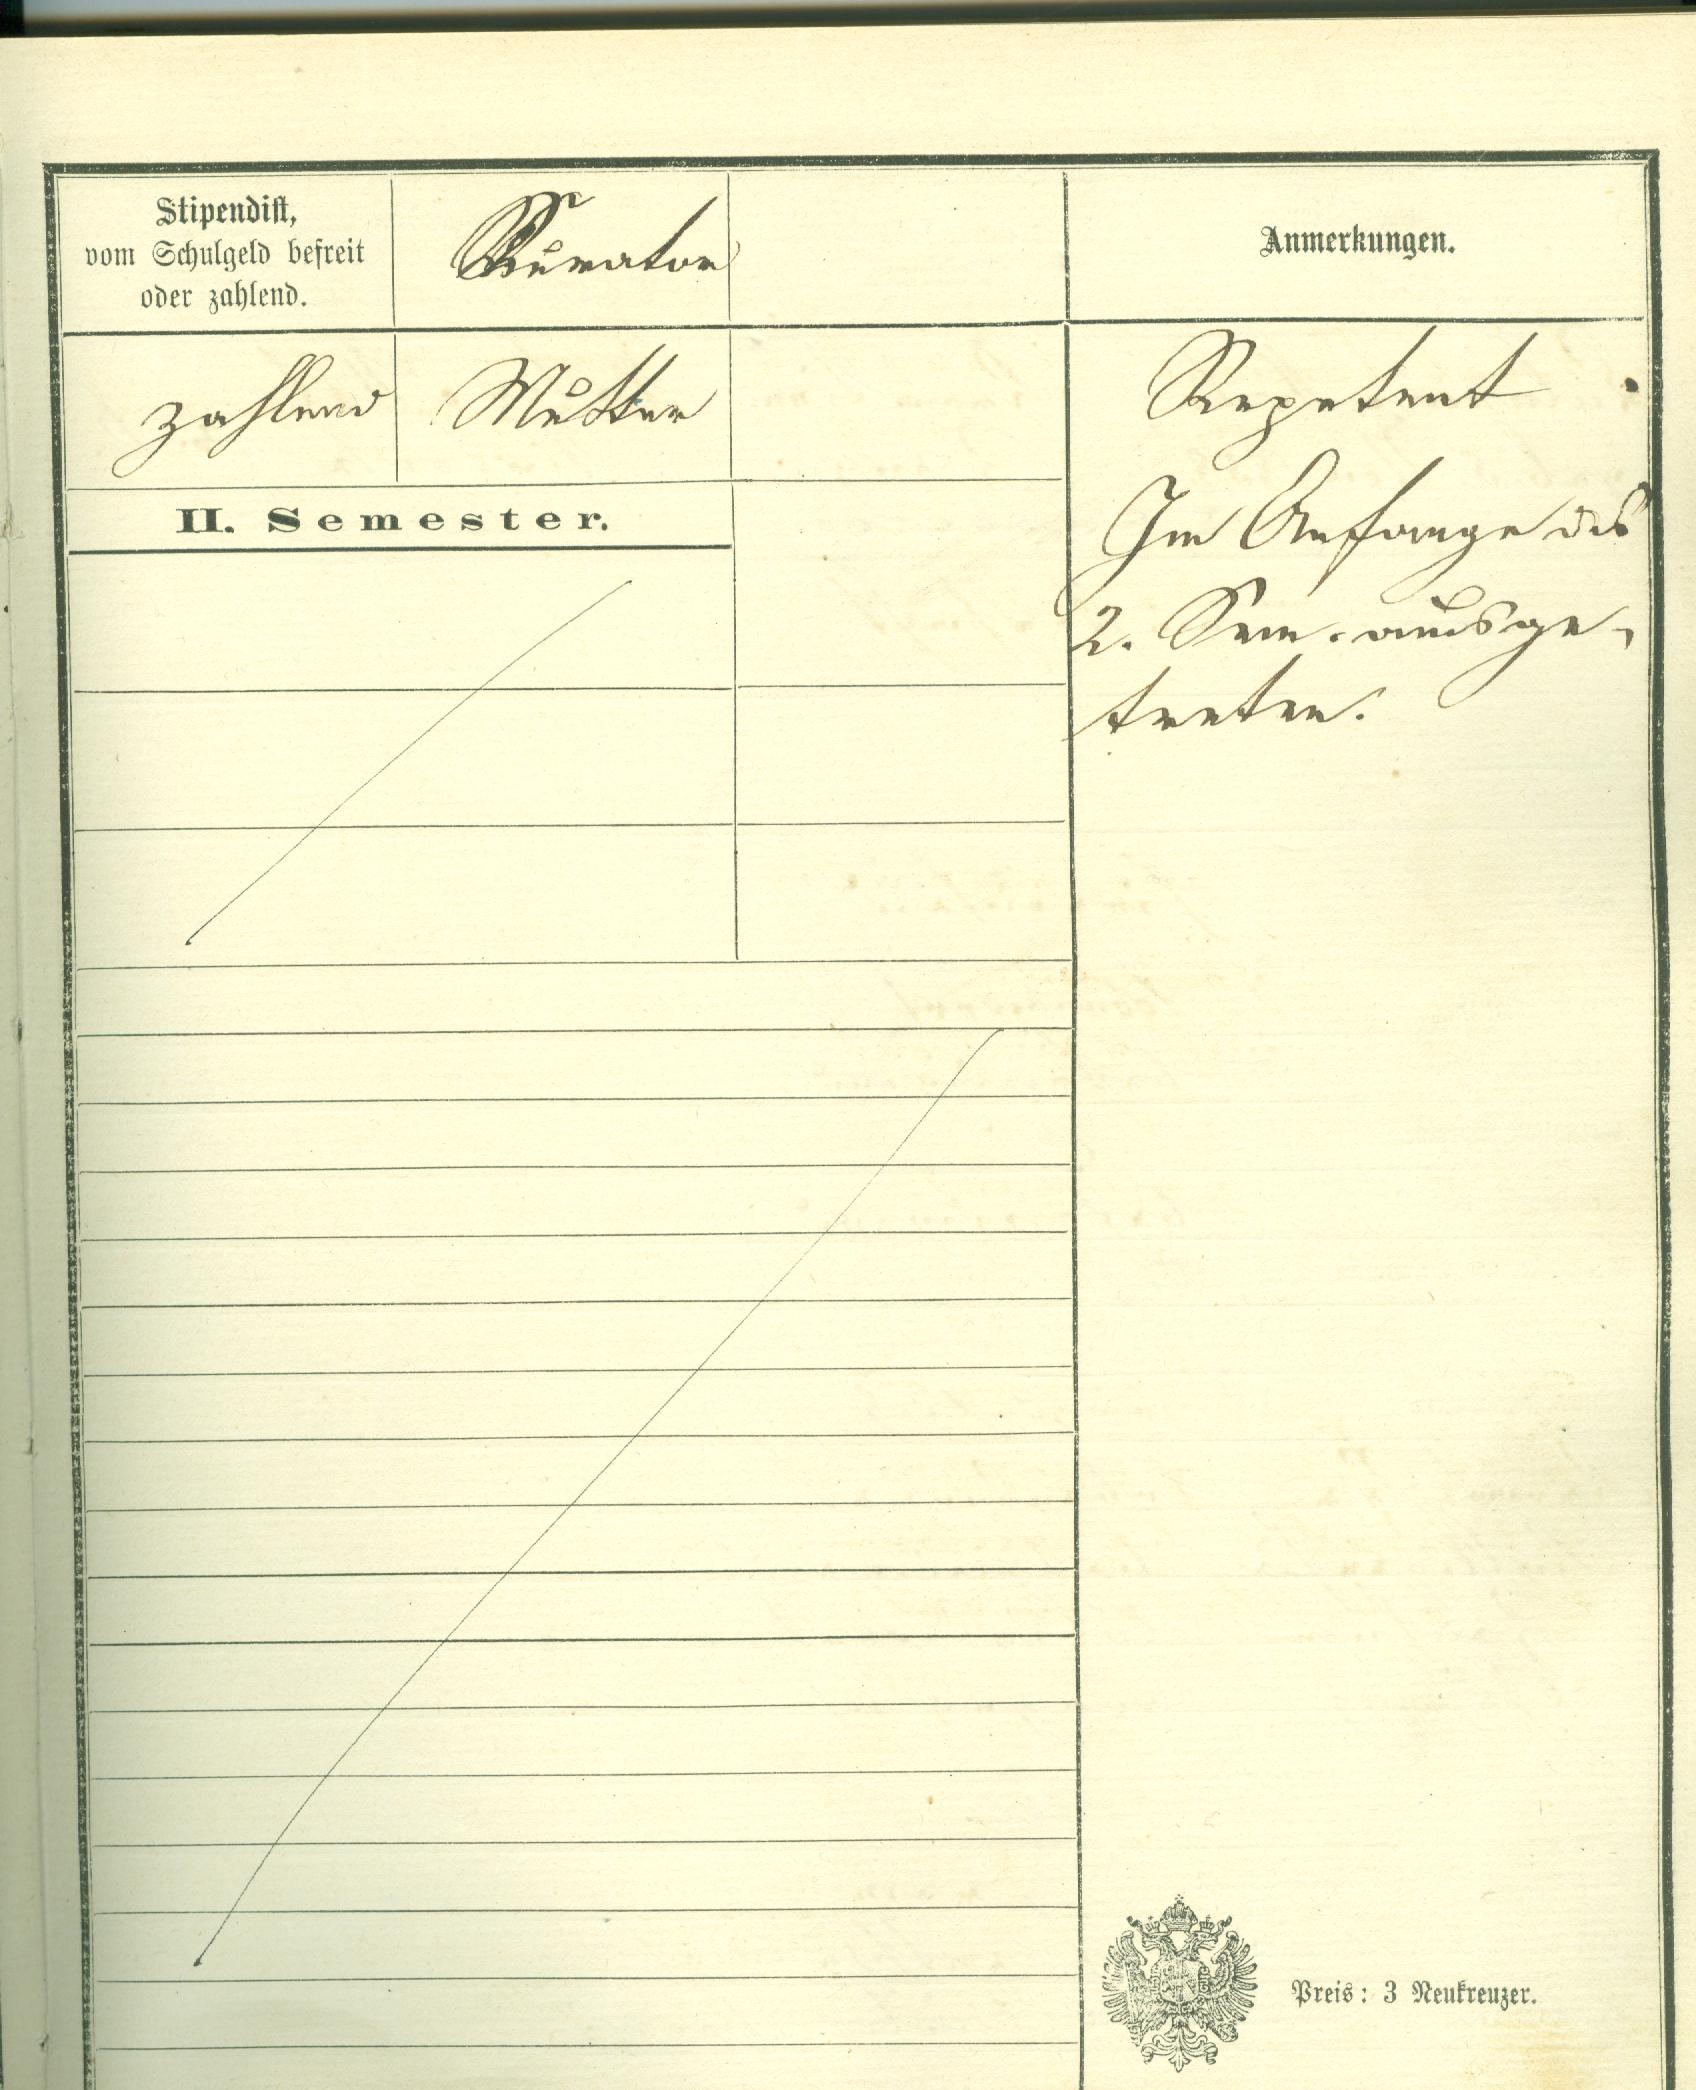 Stipendist,
vom Schulgeld befreit
oder zahlend.
Kurator
Anmerkungen.
zahlend
Mutter
Repetent
Im Anfange des
2. Sem. ausge-
treten.
II. Semester.
Preis: 3 Neukreuzer.